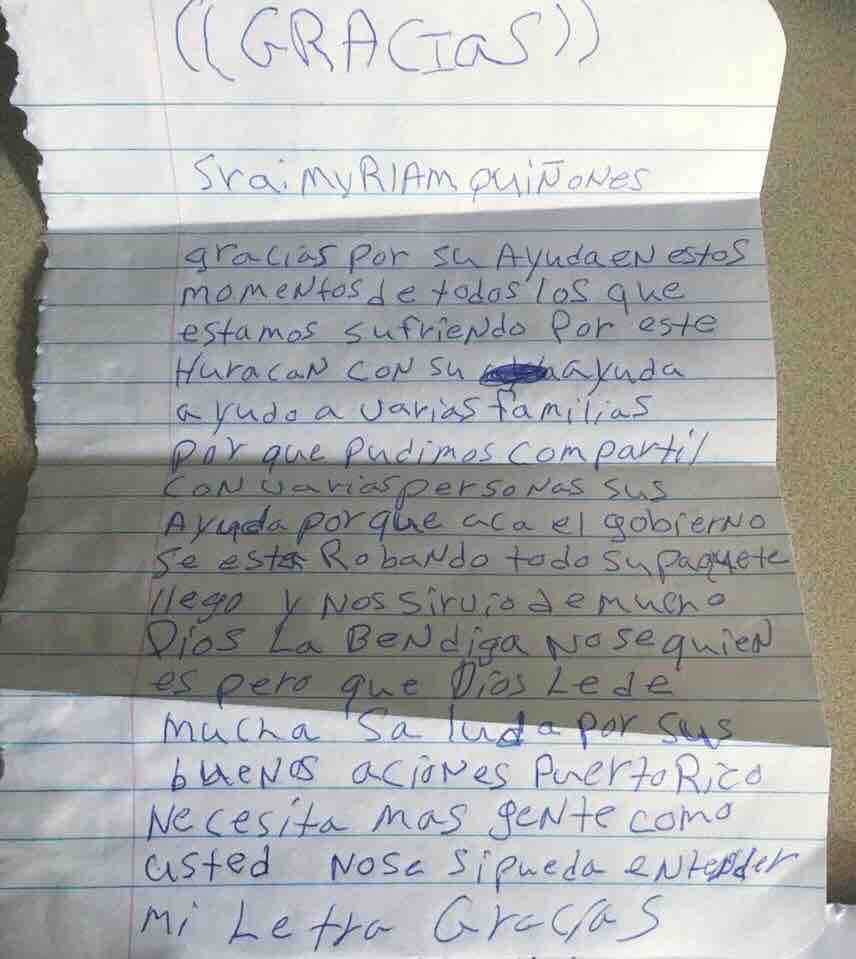 ((GRACIAS))
Sra: MyRIAM QUIÑONES
gracias por su Ayuda en estos
momentos de todos los que
estamos sufriendo por este
Huracan con su ayuda
ayudo a varias familias
por que pudimos compartil
con varias personas sus
Ayuda por que aca el gobierno
se esta Robando todo su paquete
llego y nos sirvio de mucho
Dios La Bendiga no se quien
es pero que Dios Le de
mucha Saluda por sus
buenos aciones Puerto Rico
necesita mas gente como
usted no se si pueda entender
mi Letra Gracias